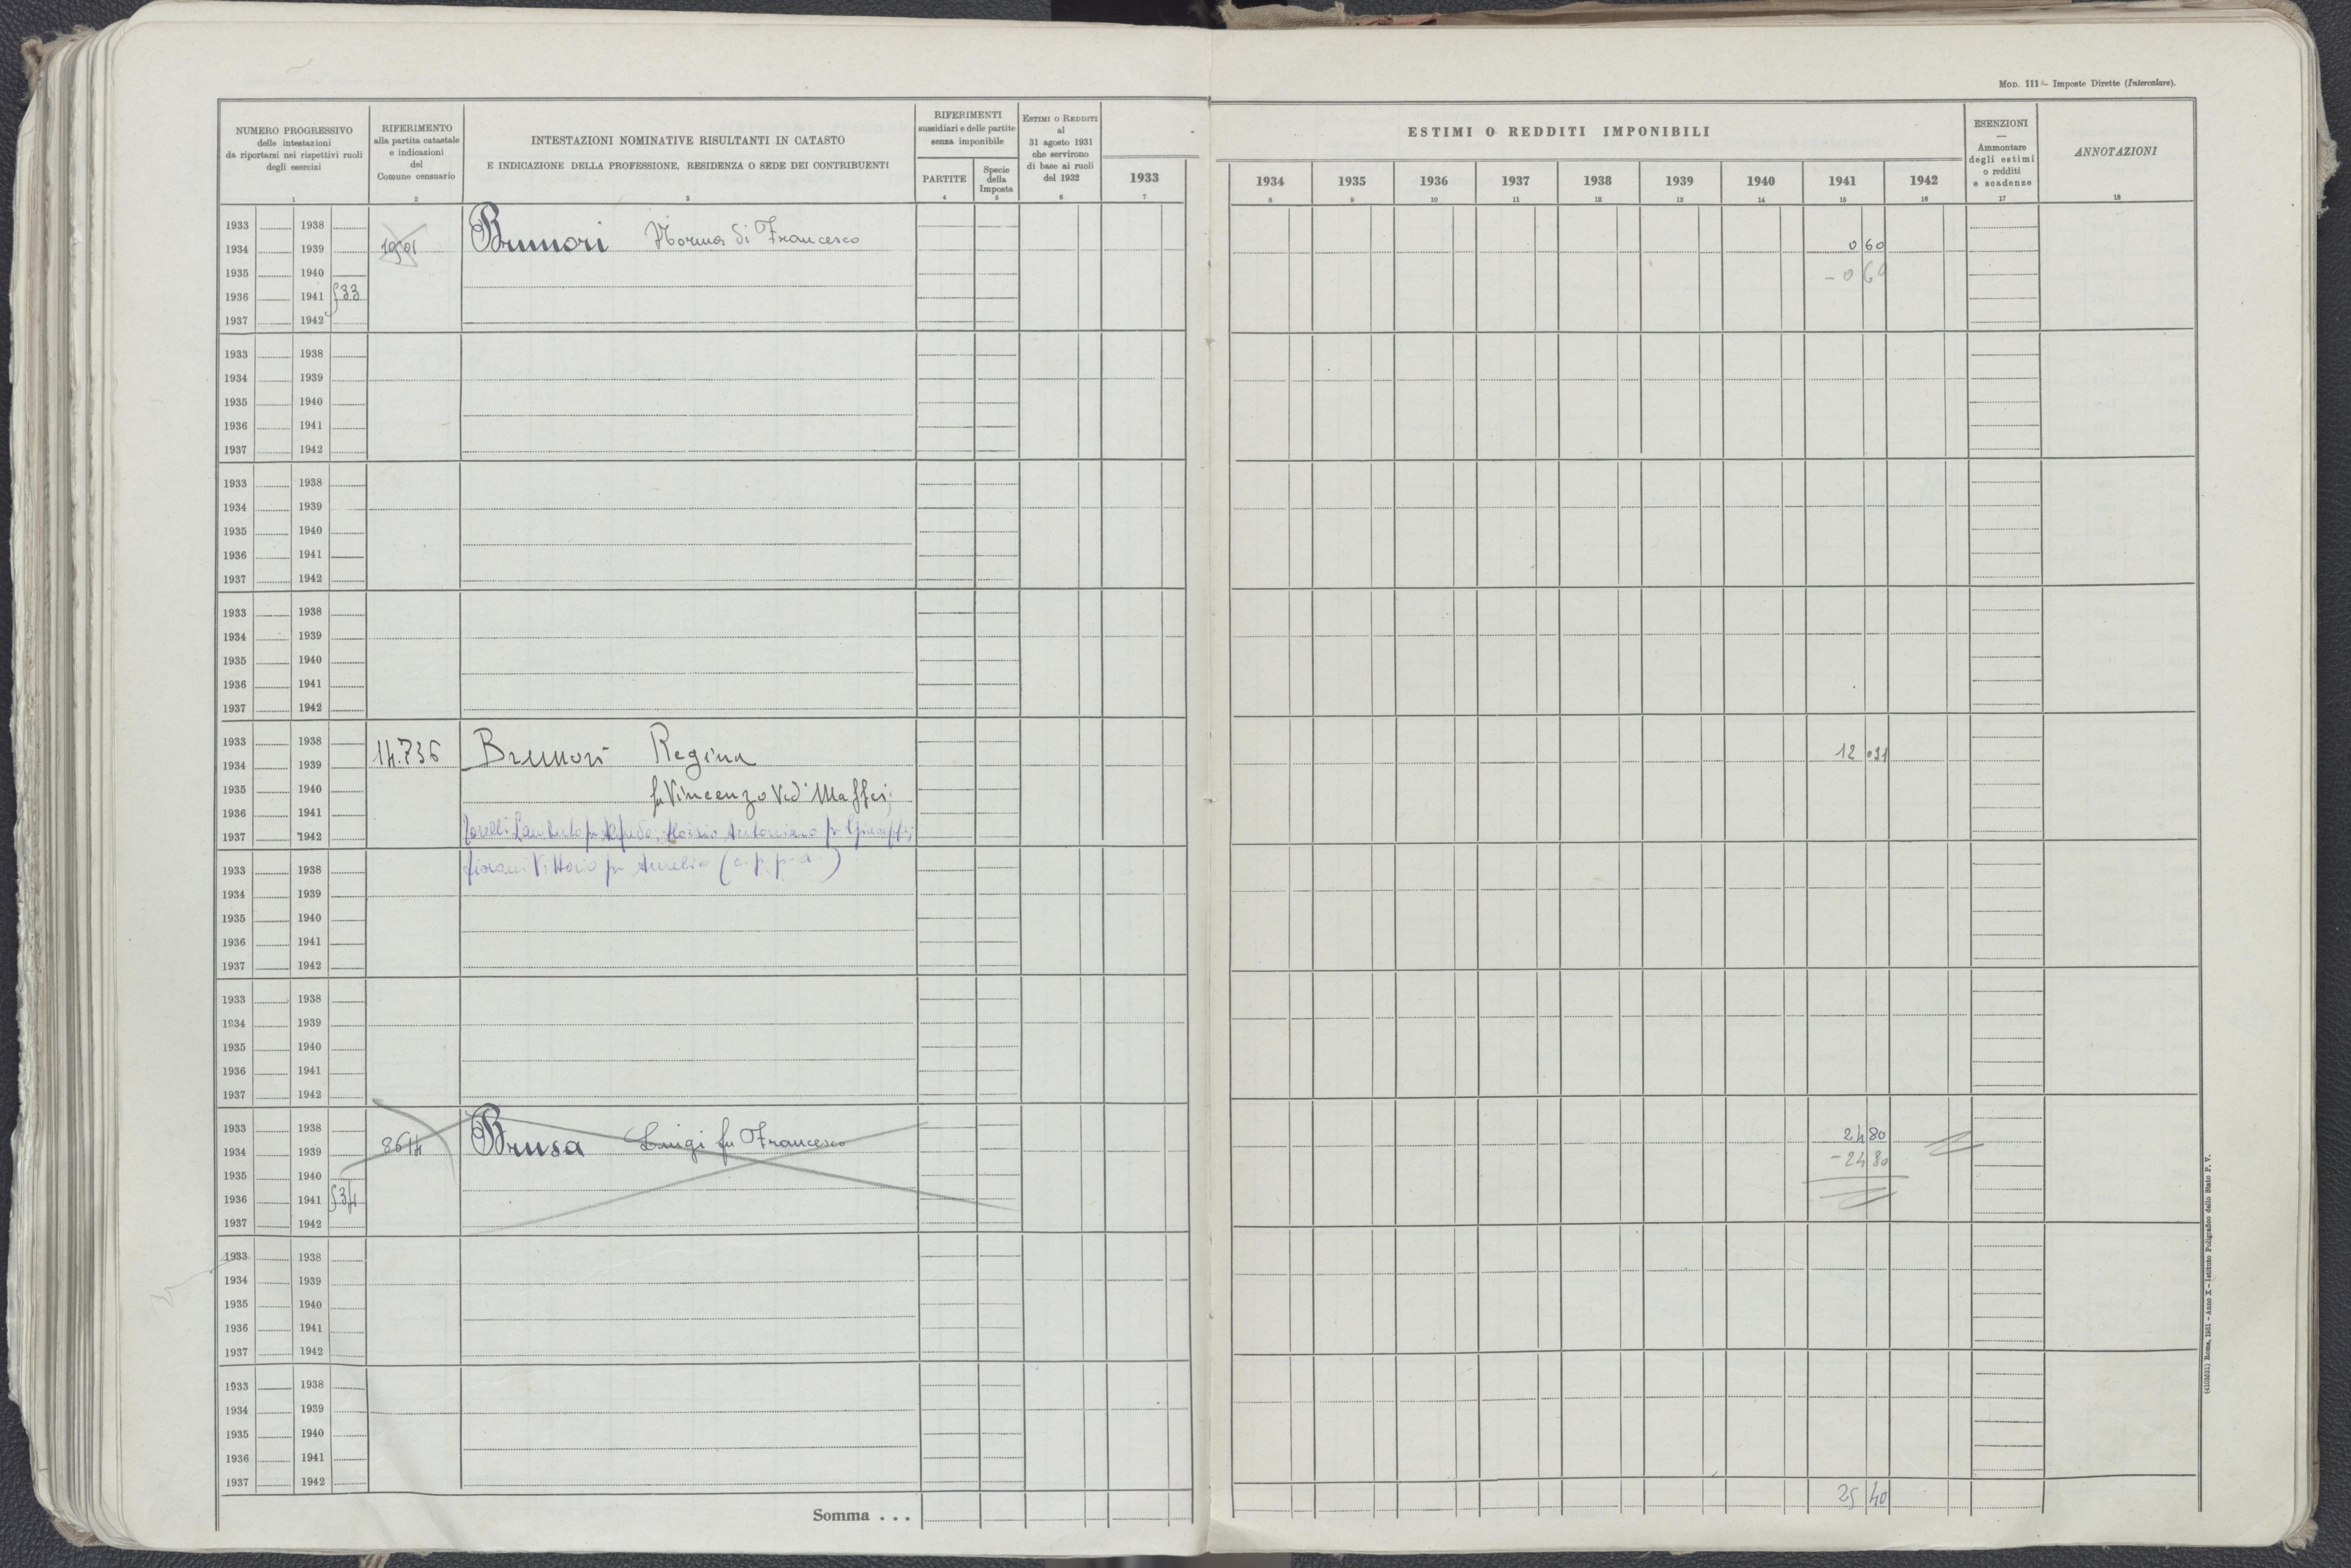 MOD. 111 - Imposte Dirette (Intercalare).
NUMERO PROGRESSIVO
delle intestazioni
da riportarsi nei rispettivi ruoli
degli esercizi
1
RIFERIMENTO
alla partita catastale
e indicazioni
del
Comune censuario
2
INTESTAZIONI NOMINATIVE RISULTANTI IN CATASTO
E INDICAZIONE DELLA PROFESSIONE, RESIDENZA O SEDE DEI CONTRIBUENTI
3
RIFERIMENTI
sussidiari e delle partite
senza imponibile
PARTITE
4
Specie
della
Imposta
5
ESTIMI O REDDITI
al
31 agosto 1931
che servirono
di base ai ruoli
del 1932
6
1933
7
ESTIMI O REDDITI IMPONIBILI
1934 1935 1936 1937 1938 1939 1940 1941 1942
8 9 10 11 12 13 14 15 16
ESENZIONI
—
Ammontare
degli estimi
o redditi
e scadenze
17
ANNOTAZIONI
18
1933 1938 Brunori Norma di Francesco
1934 1939 0 60
1935 1940 - 0 60
1936 1941 533
1937 1942
1933 1938
1934 1939
1935 1940
1936 1941
1937 1942
1933 1938
1934 1939
1935 1940
1936 1941
1937 1942
1933 1938
1934 1939
1935 1940
1936 1941
1937 1942
1933 1938 14.736 Brunori Regina 12
1934 1939
1935 1940 fu Vincenzo Ved. Maffei;
1936 1941
1937 1942
1933 1938 Vittorio fu Aurelio (c. p. p. a.)
1934 1939
1935 1940
1936 1941
1937 1942
1933 1938
1934 1939
1935 1940
1936 1941
1937 1942
1933 1938 Brusa Luigi fu Francesco 24 80
1934 1939 8614 - 24 80
1935 1940
1936 1941 534
1937 1942
1933 1938
1934 1939
1935 1940
1936 1941
1937 1942
1933 1938
1934 1939
1935 1940
1936 1941
1937 1942
Somma . . . 25 40
(4103631) Roma, 1931 - Anno X - Istituto Poligrafico dello Stato P. V.